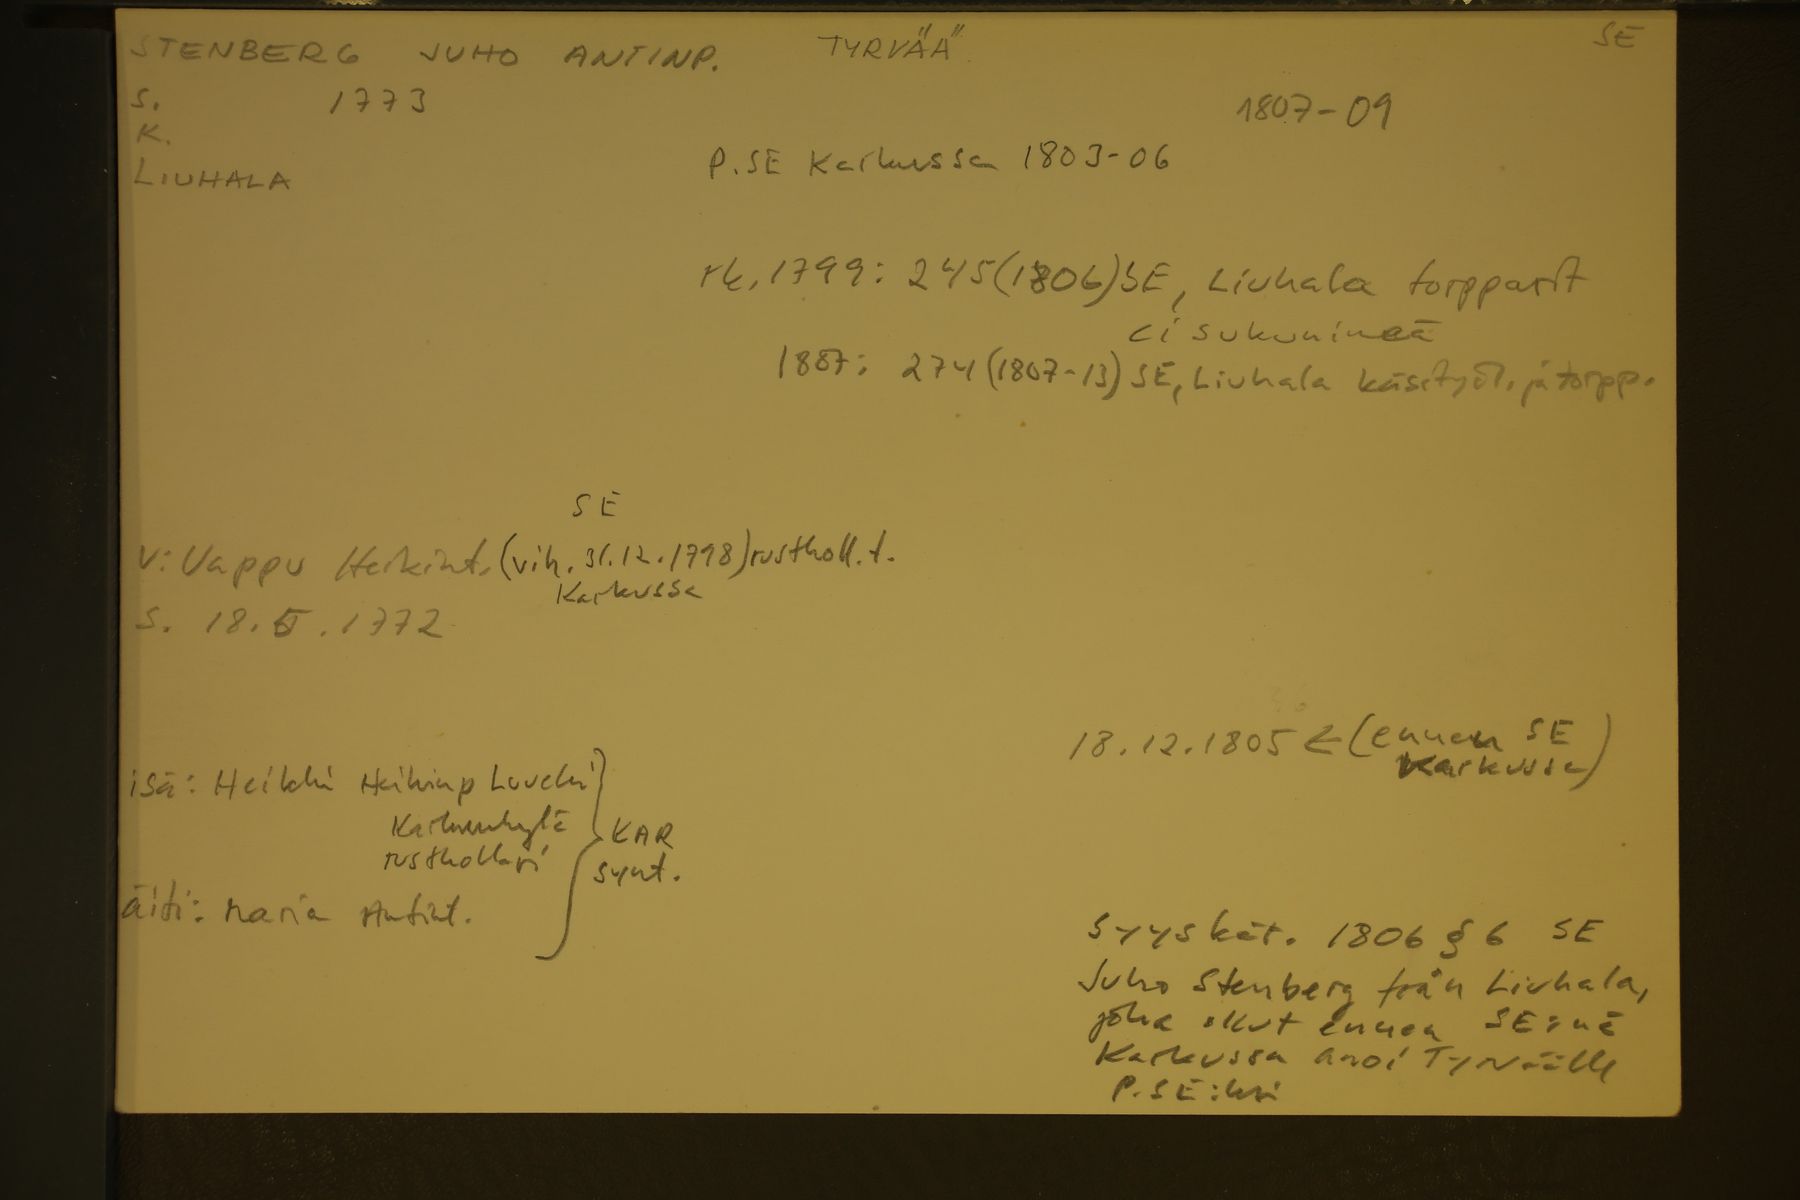 STENBERG JUHO ANTINP. TYRVÄÄ SE
s. 1773 1807-09
K.
P.SE Karkussa 1803-06
LIUHALA
rk. 1799: 245(1806)SE, Liuhala torpparit
ei sukunimeä
1807: 274(1807-13)SE, Liuhala käsityöl. ja torpp.
SE
v: Vappu Heikint. (vih. 31.12.1798)rustholl.t.
Karkussa
s. 18.5.1772
18.12.1805 ← (ennen SE
Karkussa)
isä: Heikki Heikinp
Karkunkylä
rusthollari
KAR
synt.
äiti: Maria Antint.
syyskär. 1806 § 6 SE
Juho Stenberg från Liuhala,
joka ollut ennen SE:nä
Karkussa anoi Tyrväälle
P.SE:ksi